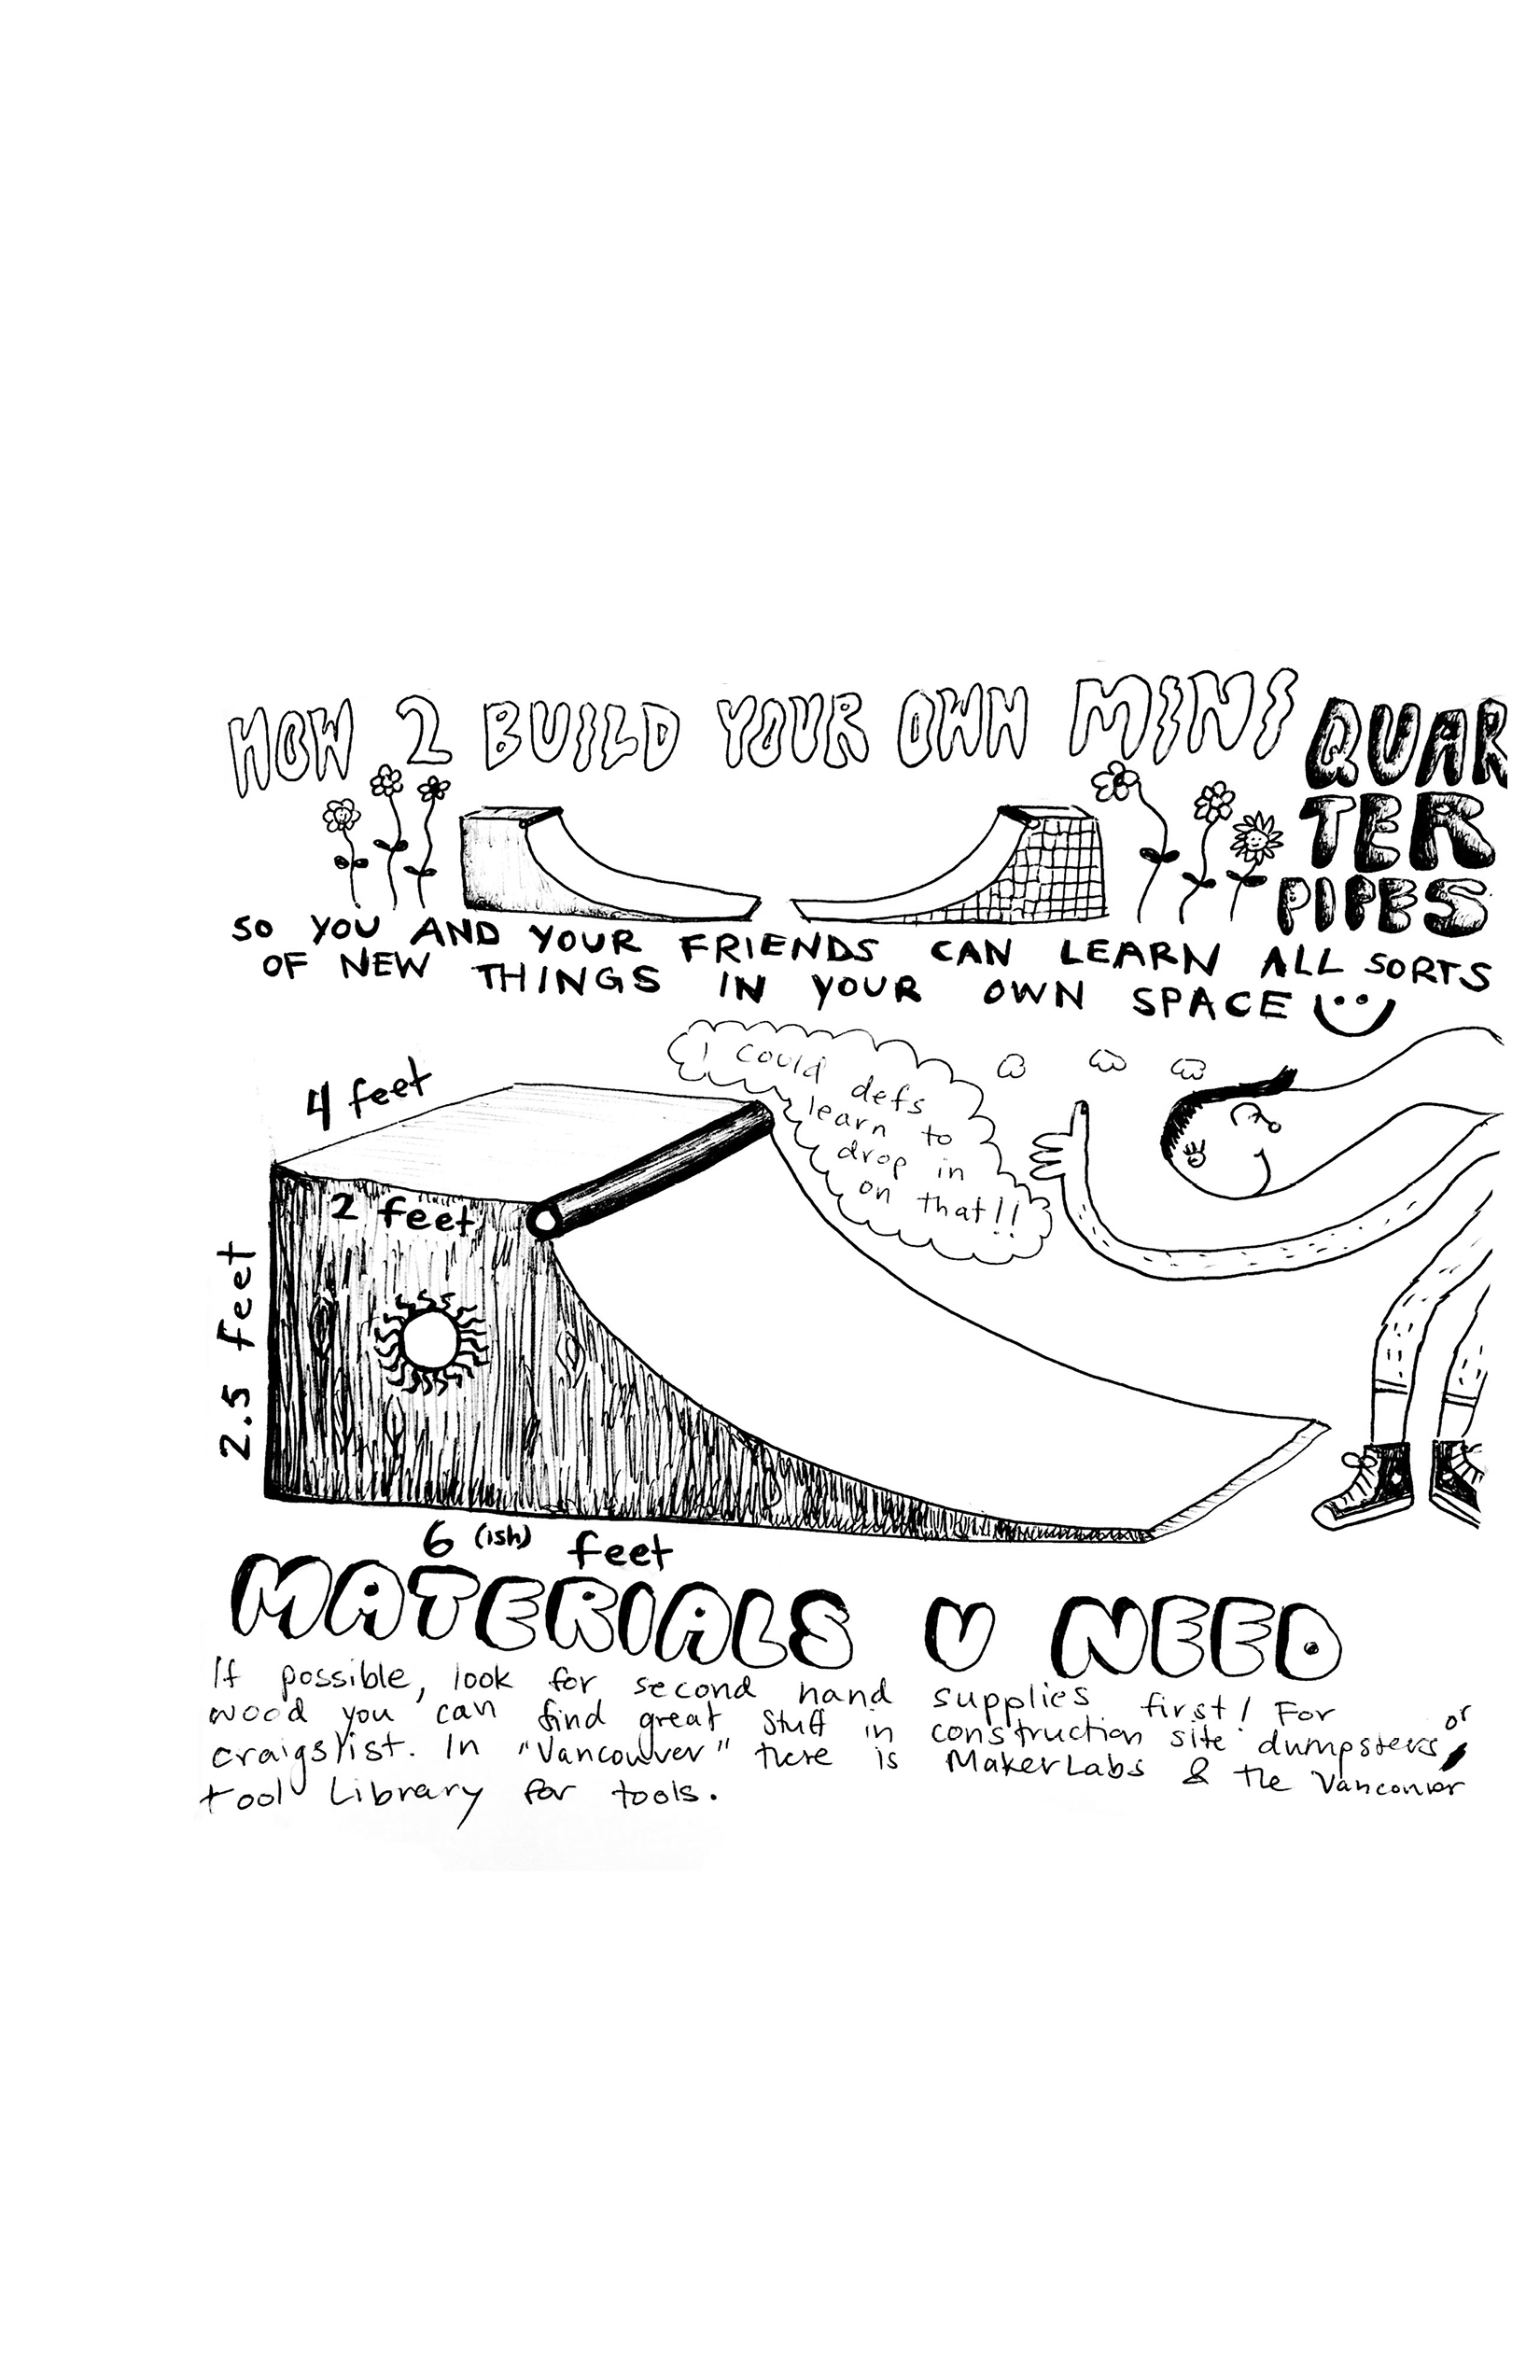 HOW 2 BUILD YOUR OWN MINI QUAR
TER
PIPES
SO YOU AND YOUR FRIENDS CAN LEARN ALL SORTS
OF NEW THINGS IN YOUR OWN SPACE
I could defs
learn to
drop in
on that!!
4 feet
2 feet
2.5 feet
6 (ish) feet
MATERIALS U NEED
If possible, look for second hand supplies first! For
wood you can find great stuff in construction site dumpsters or
craigslist. In "Vancouver" there is MakerLabs & the Vancouver
tool Library for tools.